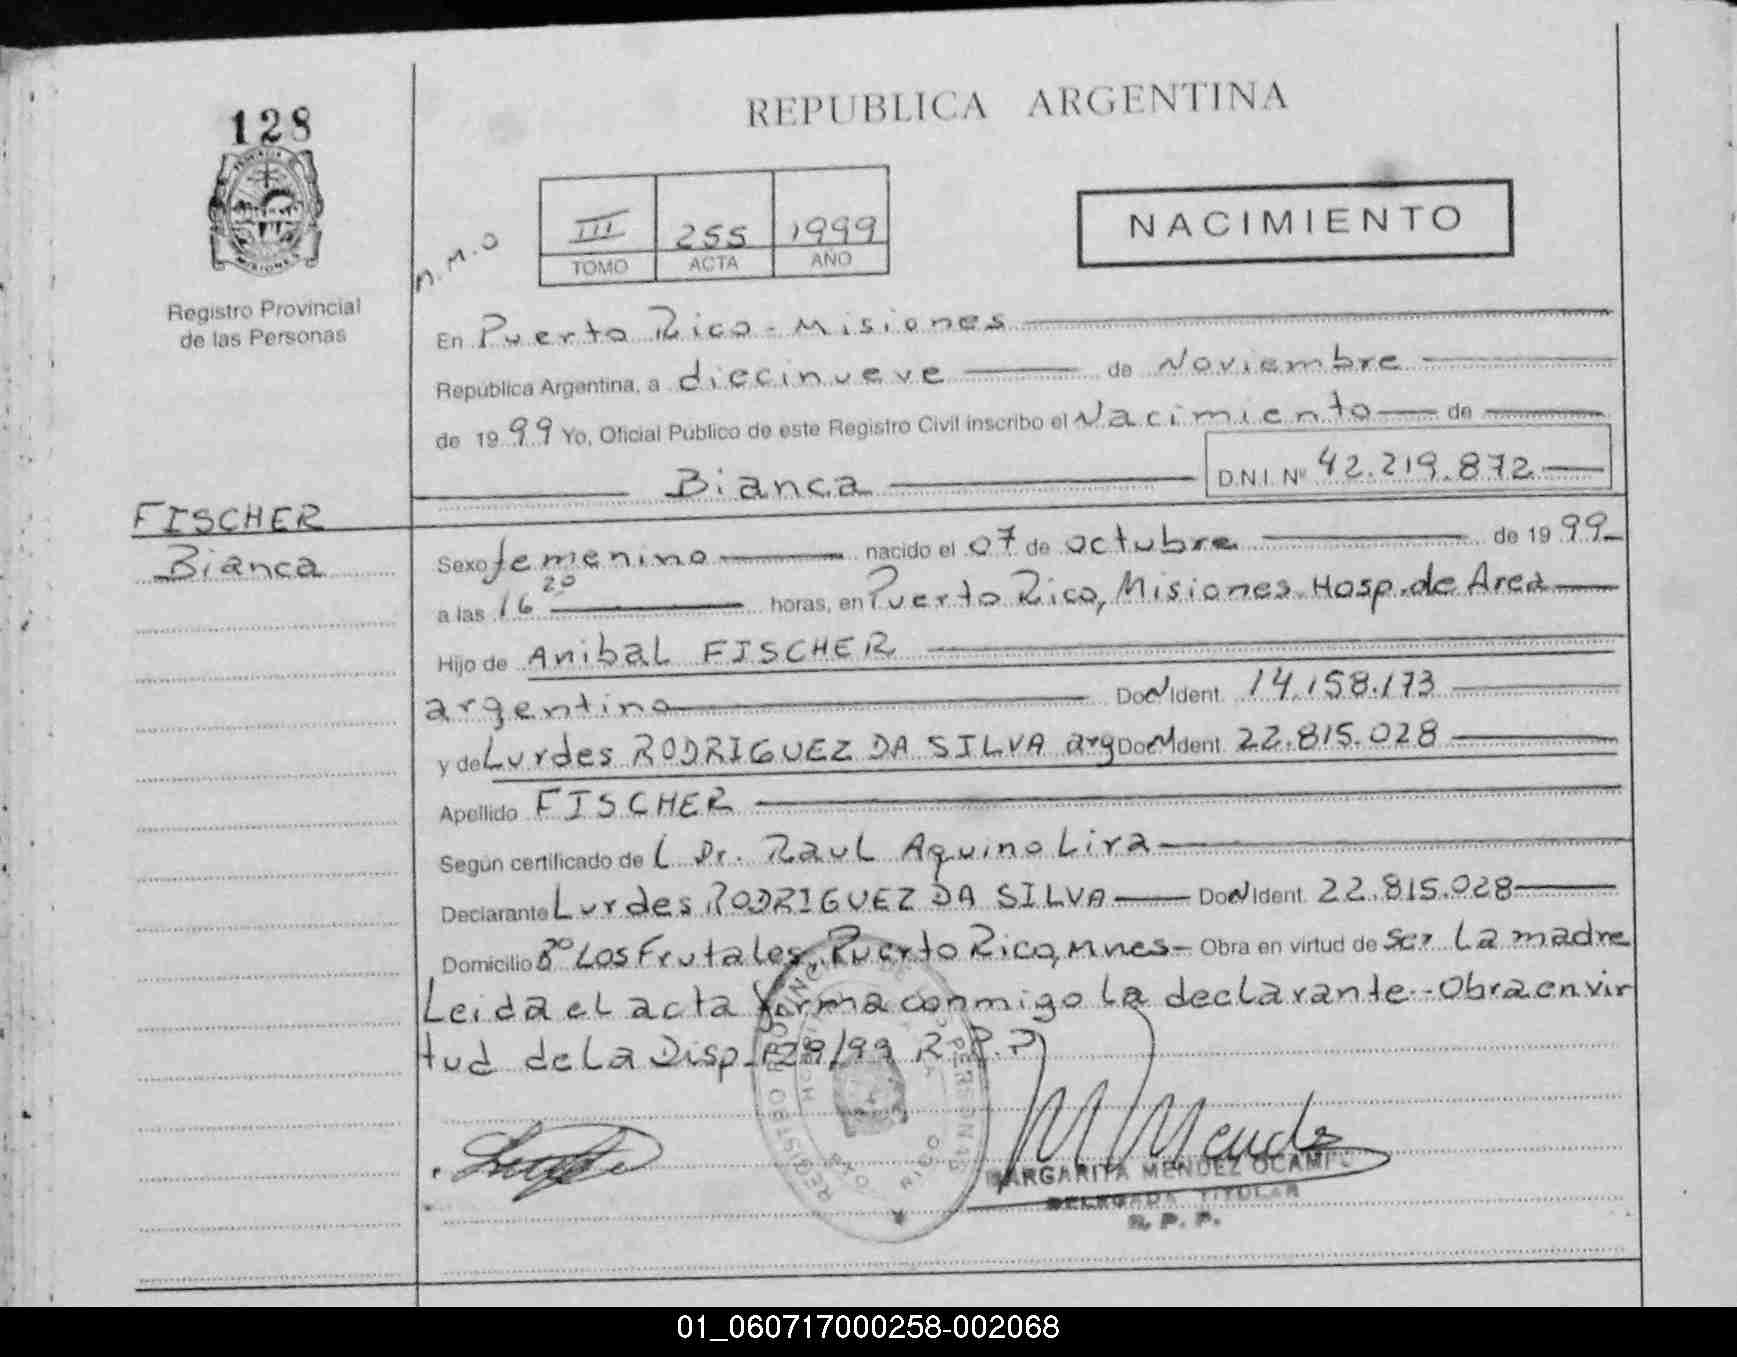 128
Registro Provincial
de las Personas
FISCHER
Bianca
REPUBLICA ARGENTINA
III 255 1999
TOMO ACTA AÑO
NACIMIENTO
M.M.O
En Puerto Rico - Misiones
Republica Argentina, a diecinueve de Noviembre
de 1999 Yo, Oficial Público de este Registro Civil inscribo el Nacimiento de
Bianca D.N.I. Nº 42.219.872
Sexo femenino nacido el 07 de octubre de 1999
a las 16 20 horas, en Puerto Rico, Misiones Hosp. de Area
Hijo de Anibal FISCHER
argentino Doc Ident. 14.158.173
y de Lurdes RODRIGUEZ DA SILVA arg Doc Ident. 22.815.028
Apellido FISCHER
Según certificado de l Dr. Raul Aquino Lira
Declarante Lurdes RODRIGUEZ DA SILVA Doc Ident. 22.815.028
Domicilio Bº Los Frutales, Puerto Rico, Mnes - Obra en virtud de ser la madre
Leida el acta firma conmigo la declarante - Obra en vir
tud de la Disp. 129/99 R.P.P
MARGARITA MENDEZ OCAMPO
DELEGADA TITULAR
R. P. P.
01_060717000258-002068